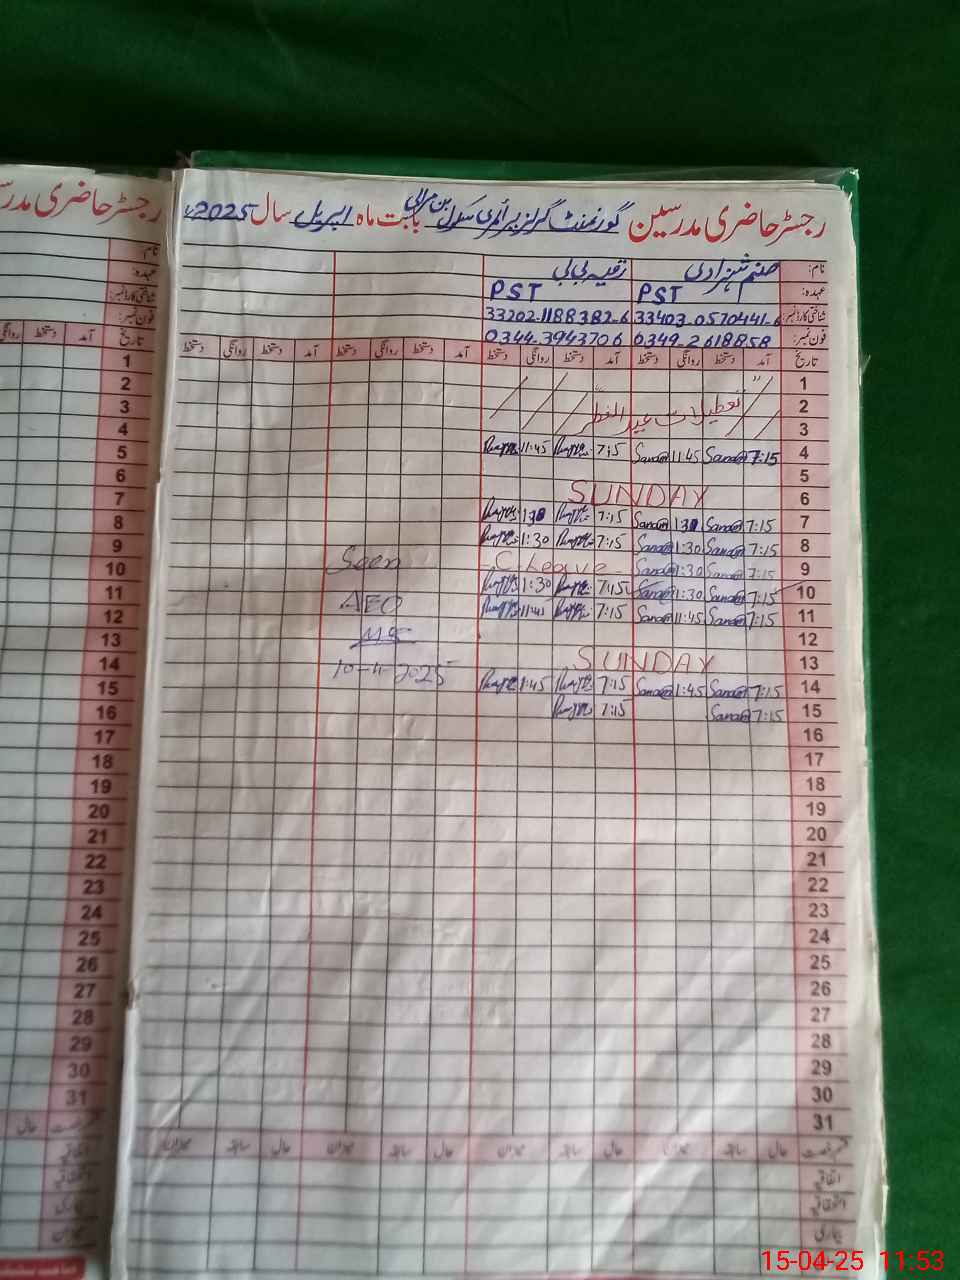 رجسٹر حاضری مدرسین گورنمنٹ گرلز پرائمری سکول بابت ماہ اپریل سال 2025ء
نام: صنم شہزادی رقیہ بی بی
عہدہ: PST PST
شناختی کارڈ نمبر: 33403-0570441-6 33202-1188382-6
فون نمبر: 0349-2618858 0344-3943706
تاریخ آمد دستخط روانگی دستخط آمد دستخط روانگی دستخط آمد دستخط روانگی دستخط آمد دستخط روانگی دستخط
1
2 تعطیلات عید الفطر
3
4 7:15 Sanam 11:45 Sanam 7:15 11:45
5
6 SUNDAY
7 7:15 Sanam 1:30 Sanam 7:15 1:30
8 7:15 Sanam 1:30 Sanam 7:15 1:30
9 7:15 Sanam 1:30 Sanam C-Leave
10 7:15 Sanam 1:30 Sanam 7:15 1:30
11 7:15 Sanam 11:45 Sanam 7:15 11:45
12
13 SUNDAY
14 7:15 Sanam 1:45 Sanam 7:15 1:45
15 7:15 Sanam 7:15
16
17
18
19
20
21
22
23
24
25
26
27
28
29
30
31
Seen
AEO
10-4-2025
حال سابقہ میزان حال سابقہ میزان حال سابقہ میزان حال سابقہ میزان
اتفاقیہ
استحقاقیہ
بیماری
رجسٹر حاضری مدرسین
نام:
عہدہ:
شناختی کارڈ نمبر:
فون نمبر:
تاریخ آمد دستخط روانگی
1
2
3
4
5
6
7
8
9
10
11
12
13
14
15
16
17
18
19
20
21
22
23
24
25
26
27
28
29
30
31
حال
اتفاقیہ
استحقاقیہ
بیماری
میزان
15-04-25 11:53